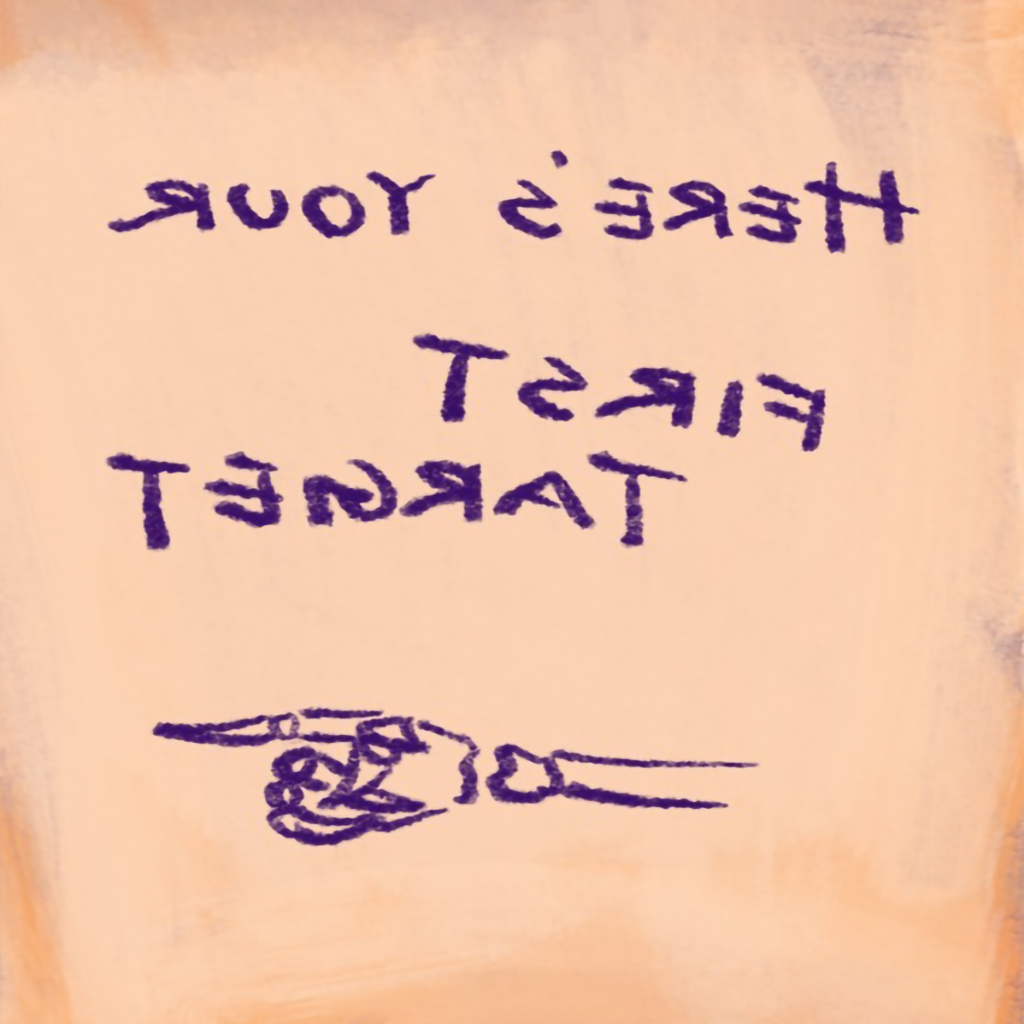 HERE'S YOUR
FIRST
TARGET